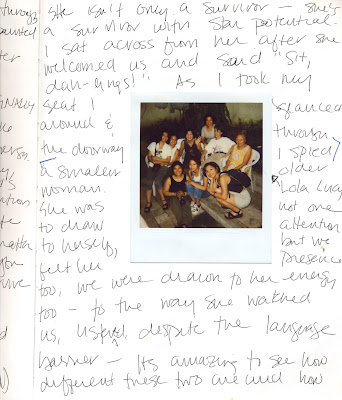 through
painted
FINALLY
She isn't only a survivor – she's
a survivor with star potential.
I sat across from her after she
welcomed us and said "Sit,
dah-lings!" As I took my
seat I glanced
around & through
the doorway I spied
a smaller older
woman. Lola Lucy
She was not one
to draw attention
to herself, but we
felt her presence
too, we were drawn to her energy
too – to the way she watched
us, listened, despite the language
barrier – It's amazing to see how
different these two are and how